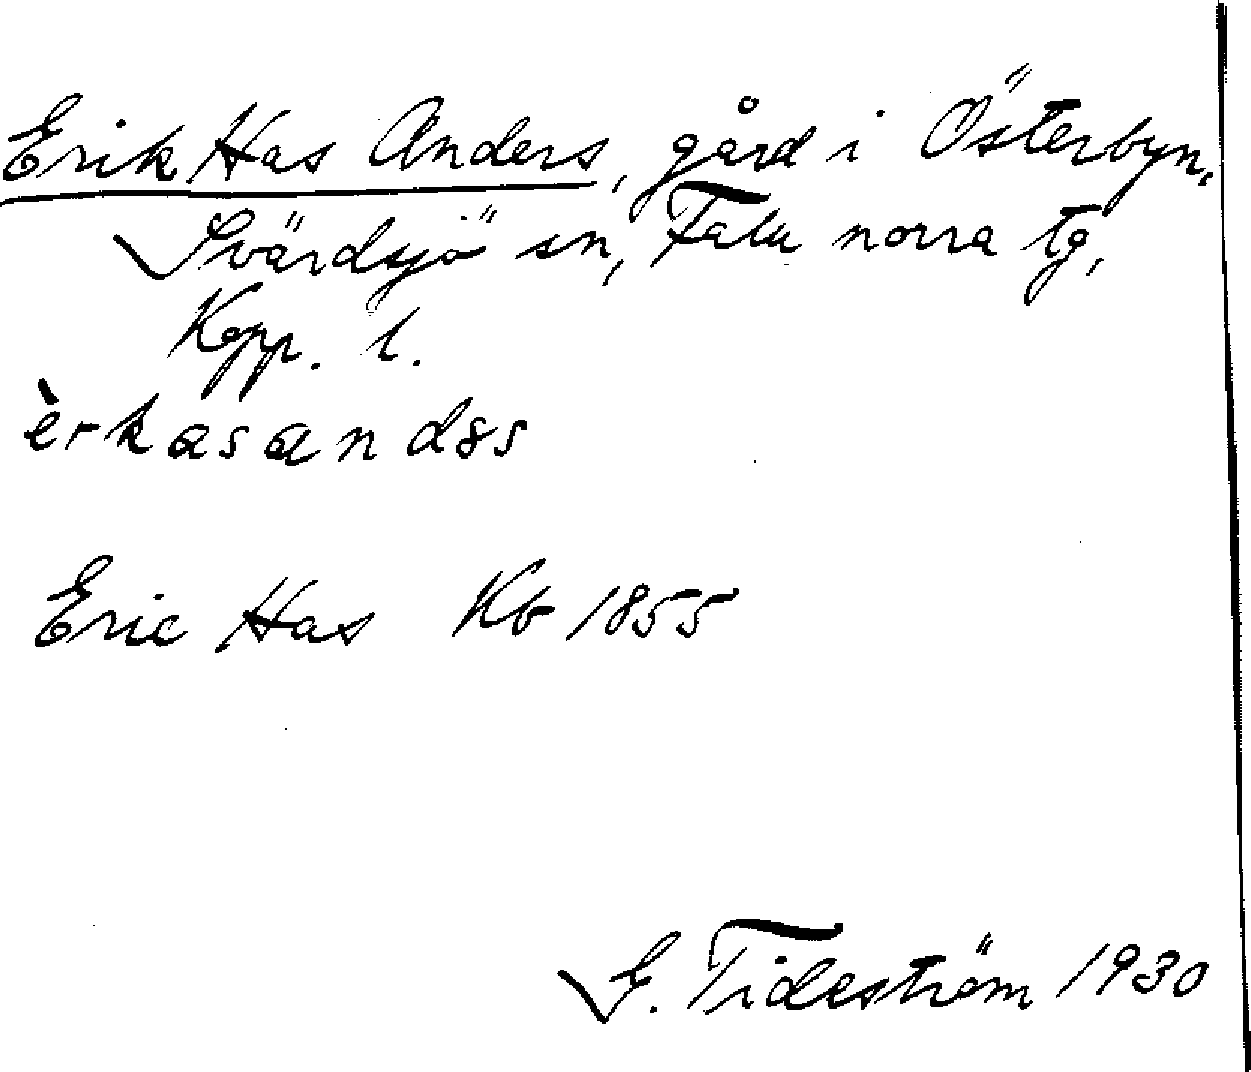 Erik Has Anders, gård i Österbyn,
Svärdsjö sn, Falu norra tg,
Kopp. l.
èrkasandss
Eric Has Kb 1855
G. Tideström 1930